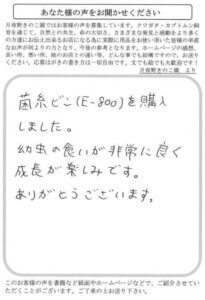 あなた様の声をお聞かせください
月夜野きのこ園ではお客様の声を募集しています。クワガタ・カブトムシ飼
育を通じて、自然との共生、命の大切さ、さまざまな発見と感動をより多く
の方達にお伝え出来るお店になる為に実際に用品をお使い頂いた皆様の率直
なお声が何よりの力となり、今後の参考となります。ホームページの感想、
良い所、悪い所、他のお店との違い等、どんな事でも結構ですので、お送り
ください。応募はがきの書き方は一切自由です。文でも絵でも大歓迎です！
月夜野きのこ園 より
菌糸ビン(E-800)を購入
しました。
幼虫の食いが非常に良く
成長が楽しみです。
ありがとうございます。
このお客様の声を書籍など紙面やホームページなどで、ご紹介させてい
ただくことがございます。ご了承の上お送り下さい。